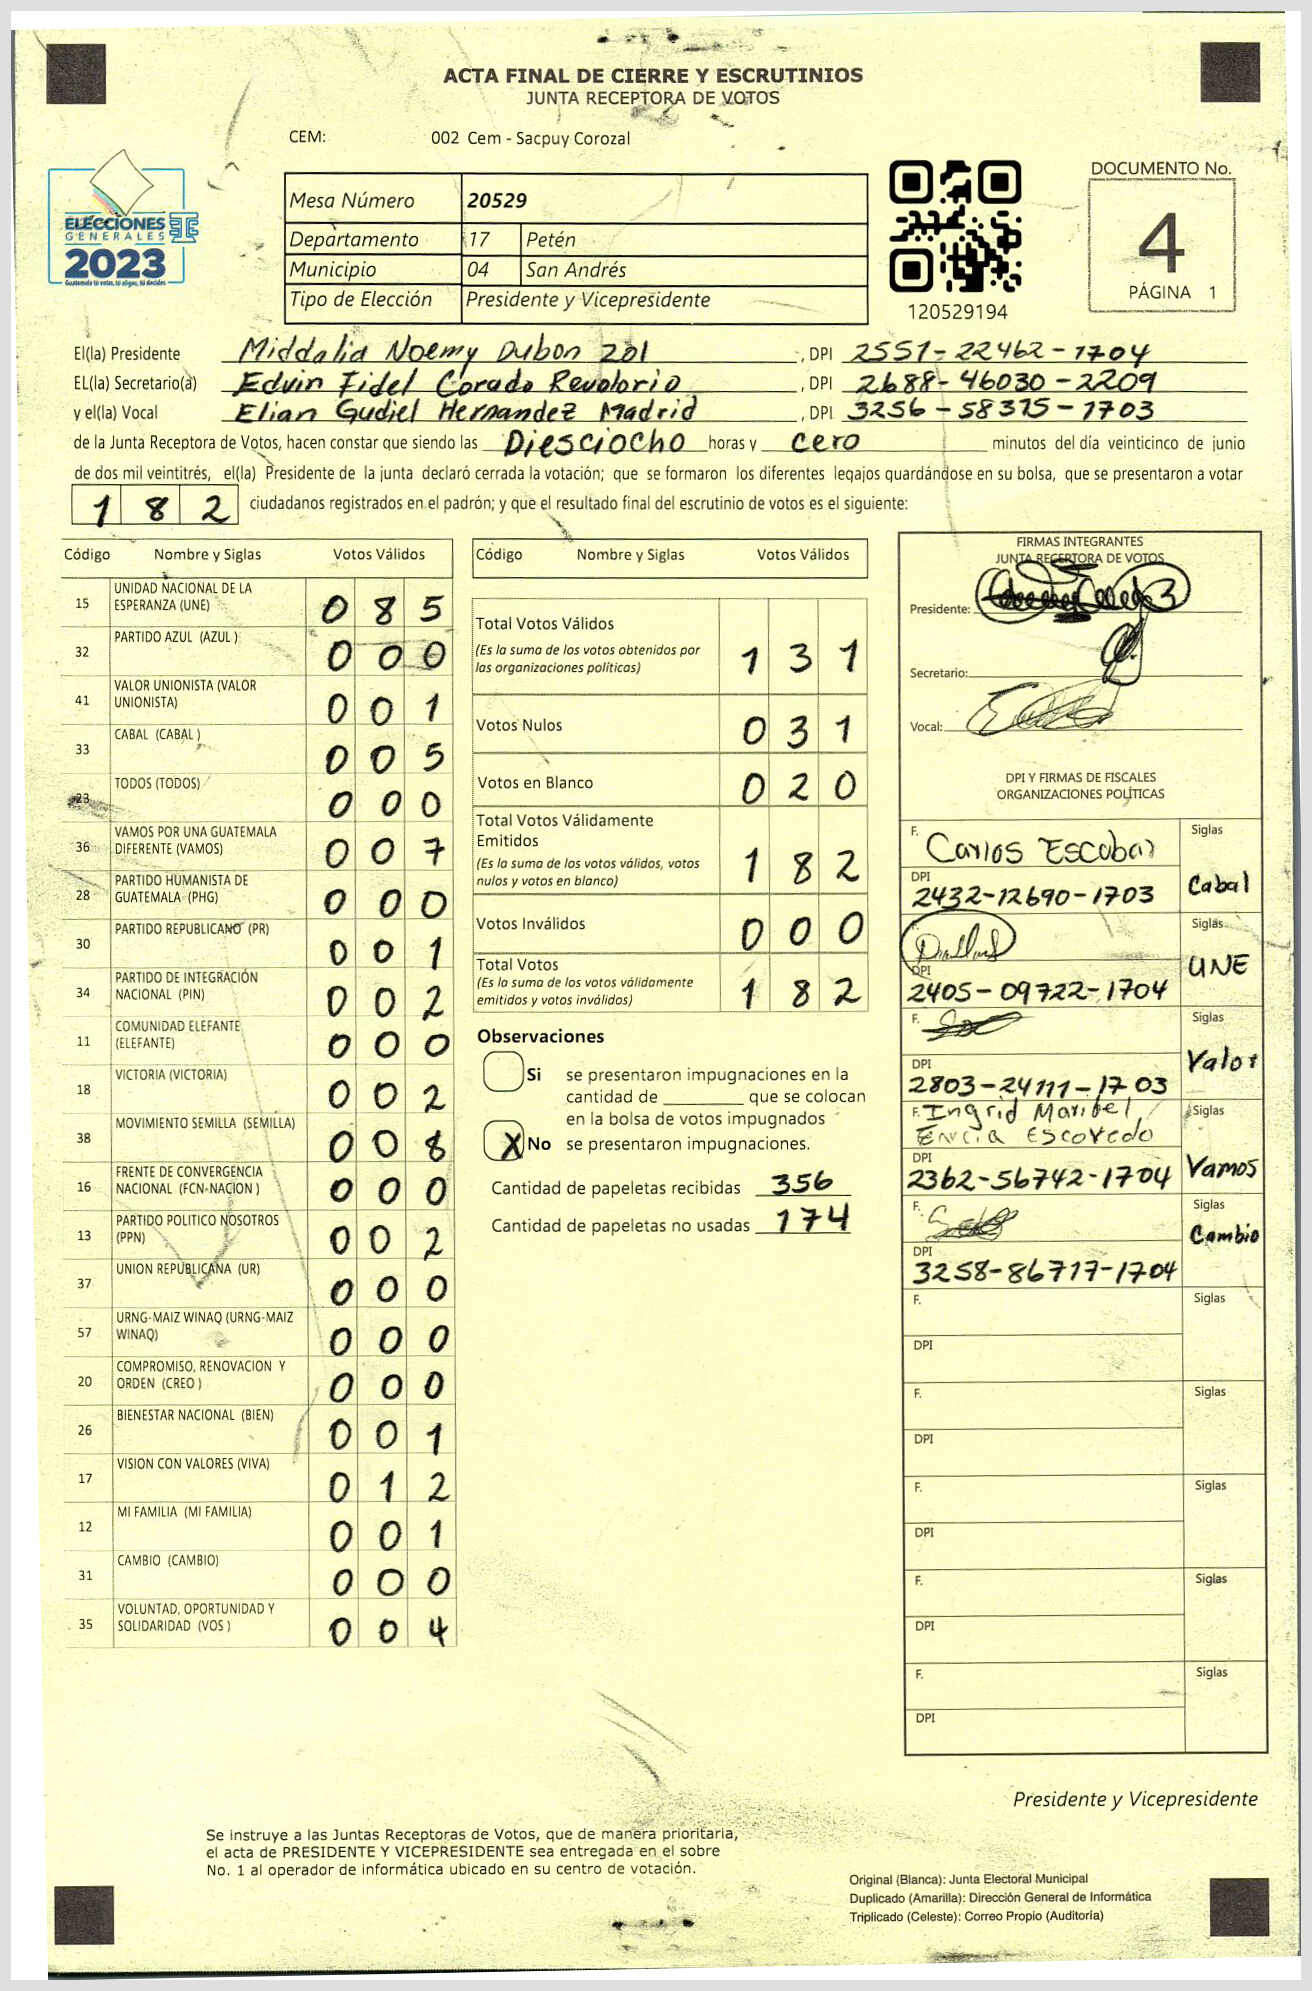 ACTA FINAL DE CIERRE Y ESCRUTINIOS
JUNTA RECEPTORA DE VOTOS
CEM: 002 Cem - Sacpuy Corozal
ELECCIONES
GENERALES
2023
Guatemala tú votas, tú eliges, tú decides
Mesa Número 20529
Departamento 17 Petén
Municipio 04 San Andrés
Tipo de Elección Presidente y Vicepresidente
120529194
DOCUMENTO No.
4
PÁGINA 1
El(la) Presidente Middalia Noemy Dubon 201, DPI 2551-22462-1704
EL(la) Secretario(a) Edvin Fidel Corado Revolorio, DPI 2688-46030-2209
y el(la) Vocal Elian Gudiel Hernandez Madrid, DPI 3256-58375-1703
de la Junta Receptora de Votos, hacen constar que siendo las Diesciocho horas y cero minutos del día veinticinco de junio
de dos mil veintitrés, el(la) Presidente de la junta declaró cerrada la votación; que se formaron los diferentes legajos guardándose en su bolsa, que se presentaron a votar
182 ciudadanos registrados en el padrón; y que el resultado final del escrutinio de votos es el siguiente:
Código Nombre y Siglas Votos Válidos
15 UNIDAD NACIONAL DE LA
ESPERANZA (UNE) 085
32 PARTIDO AZUL (AZUL ) 000
41 VALOR UNIONISTA (VALOR
UNIONISTA) 001
33 CABAL (CABAL ) 005
23 TODOS (TODOS) 000
36 VAMOS POR UNA GUATEMALA
DIFERENTE (VAMOS) 007
28 PARTIDO HUMANISTA DE
GUATEMALA (PHG) 000
30 PARTIDO REPUBLICANO (PR) 001
34 PARTIDO DE INTEGRACIÓN
NACIONAL (PIN) 002
11 COMUNIDAD ELEFANTE
(ELEFANTE) 000
18 VICTORIA (VICTORIA) 002
38 MOVIMIENTO SEMILLA (SEMILLA) 008
16 FRENTE DE CONVERGENCIA
NACIONAL (FCN-NACION ) 000
13 PARTIDO POLITICO NOSOTROS
(PPN) 002
37 UNION REPUBLICANA (UR) 000
57 URNG-MAIZ WINAQ (URNG-MAIZ
WINAQ) 000
20 COMPROMISO, RENOVACION Y
ORDEN (CREO ) 000
26 BIENESTAR NACIONAL (BIEN) 001
17 VISION CON VALORES (VIVA) 012
12 MI FAMILIA (MI FAMILIA) 001
31 CAMBIO (CAMBIO) 000
35 VOLUNTAD, OPORTUNIDAD Y
SOLIDARIDAD (VOS ) 004
Código Nombre y Siglas Votos Válidos
Total Votos Válidos
(Es la suma de los votos obtenidos por
las organizaciones políticas) 131
Votos Nulos 031
Votos en Blanco 020
Total Votos Válidamente
Emitidos
(Es la suma de los votos válidos, votos
nulos y votos en blanco) 182
Votos Inválidos 000
Total Votos
(Es la suma de los votos válidamente
emitidos y votos inválidos) 182
Observaciones
Si se presentaron impugnaciones en la
cantidad de ________ que se colocan
en la bolsa de votos impugnados
X No se presentaron impugnaciones.
Cantidad de papeletas recibidas 356
Cantidad de papeletas no usadas 174
FIRMAS INTEGRANTES
JUNTA RECEPTORA DE VOTOS
Presidente:
Secretario:
Vocal:
DPI Y FIRMAS DE FISCALES
ORGANIZACIONES POLÍTICAS
F. Carlos Escobar Siglas
DPI
2432-12690-1703 Cabal
Siglas
DPI UNE
2405-09722-1704
F. Siglas
DPI Valor
2803-24111-1703
F. Ingrid Maribel Siglas
Escovedo
DPI
2362-56742-1704 Vamos
F. Siglas
Cambio
DPI
3258-86717-1704
F. Siglas
DPI
F. Siglas
DPI
F. Siglas
DPI
F. Siglas
DPI
F. Siglas
DPI
Presidente y Vicepresidente
Se instruye a las Juntas Receptoras de Votos, que de manera prioritaria,
el acta de PRESIDENTE Y VICEPRESIDENTE sea entregada en el sobre
No. 1 al operador de informática ubicado en su centro de votación.
Original (Blanca): Junta Electoral Municipal
Duplicado (Amarilla): Dirección General de Informática
Triplicado (Celeste): Correo Propio (Auditoría)